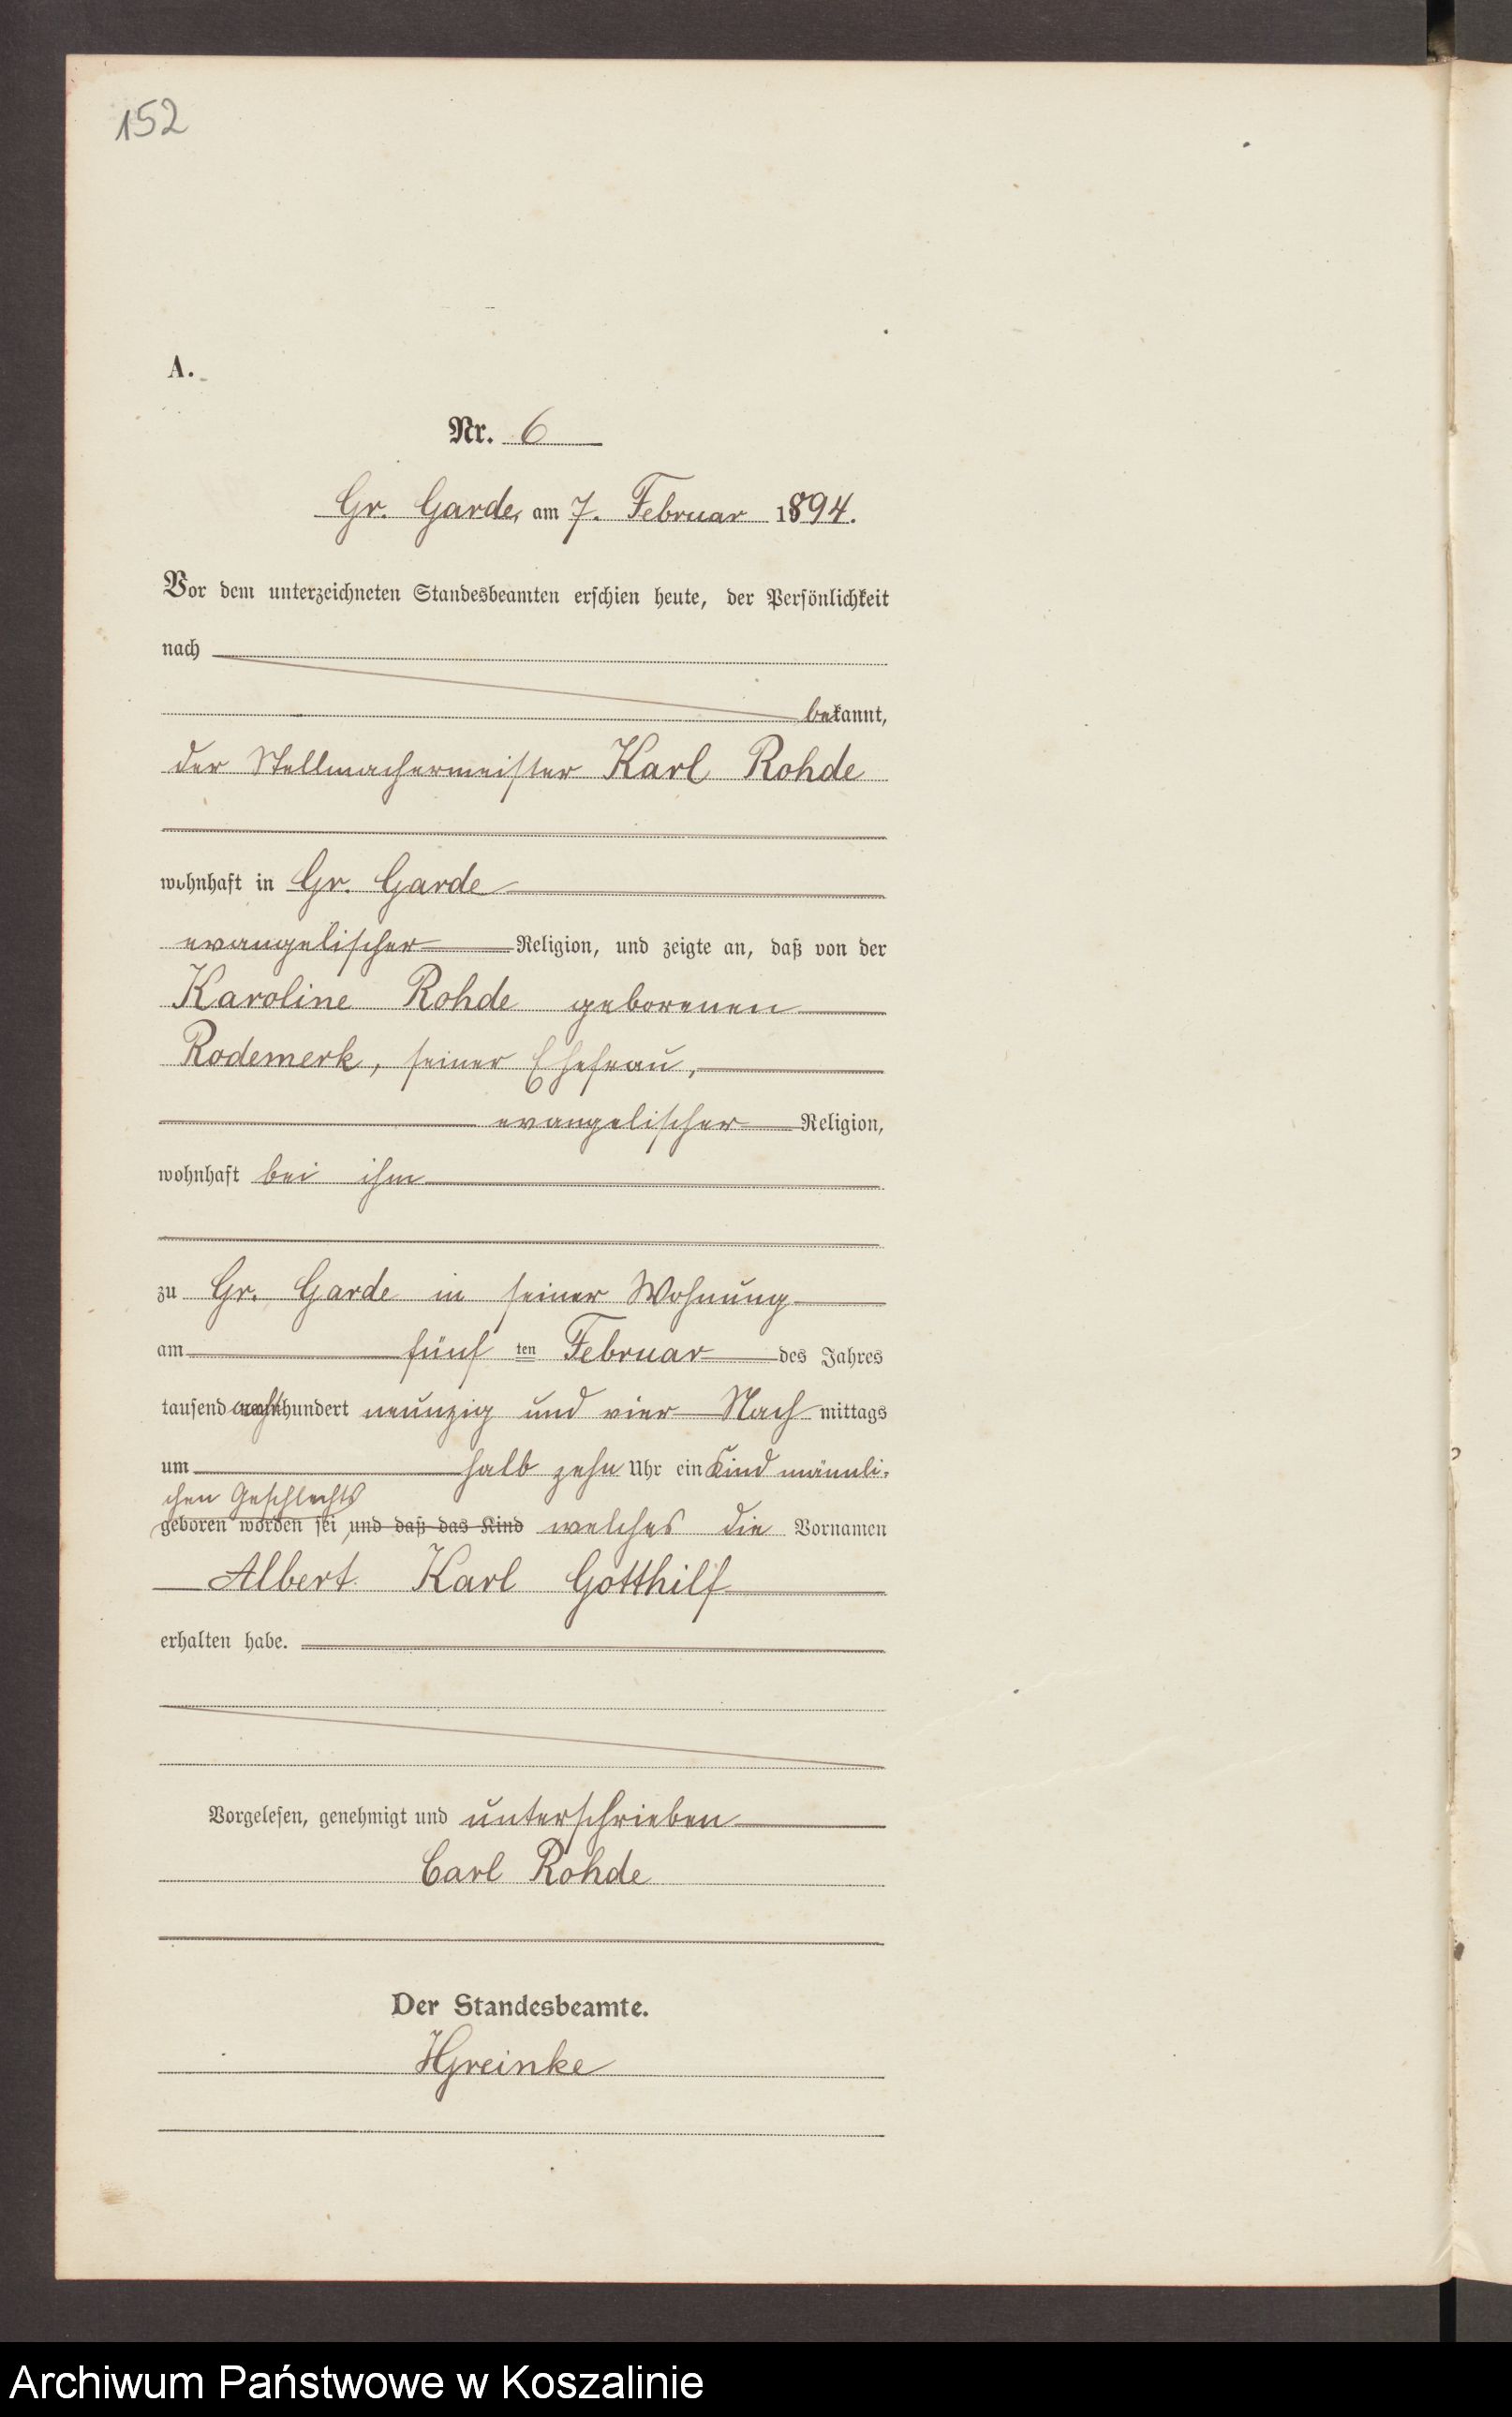 152
A.
Nr. 6
Gr. Garde, am 7. Februar 1894.
Vor dem unterzeichneten Standesbeamten erschien heute, der Persönlichkeit
nach
bekannt,
der Stellmachermeister Karl Rohde
wohnhaft in Gr. Garde
evangelischer Religion, und zeigte an, daß von der
Karoline Rohde geborenen
Rodemerk, seiner Ehefrau,
evangelischer Religion,
wohnhaft bei ihm
zu Gr. Garde in seiner Wohnung
am fünf ten Februar des Jahres
tausend achthundert neunzig und vier Nach mittags
um halb zehn Uhr ein Kind männli-
chen Geschlechts
geboren worden sei und daß das Kind welches die Vornamen
Albert Karl Gotthilf
erhalten habe.
Vorgelesen, genehmigt und unterschrieben
Carl Rohde
Der Standesbeamte.
HGreinke
Archiwum Państwowe w Koszalinie